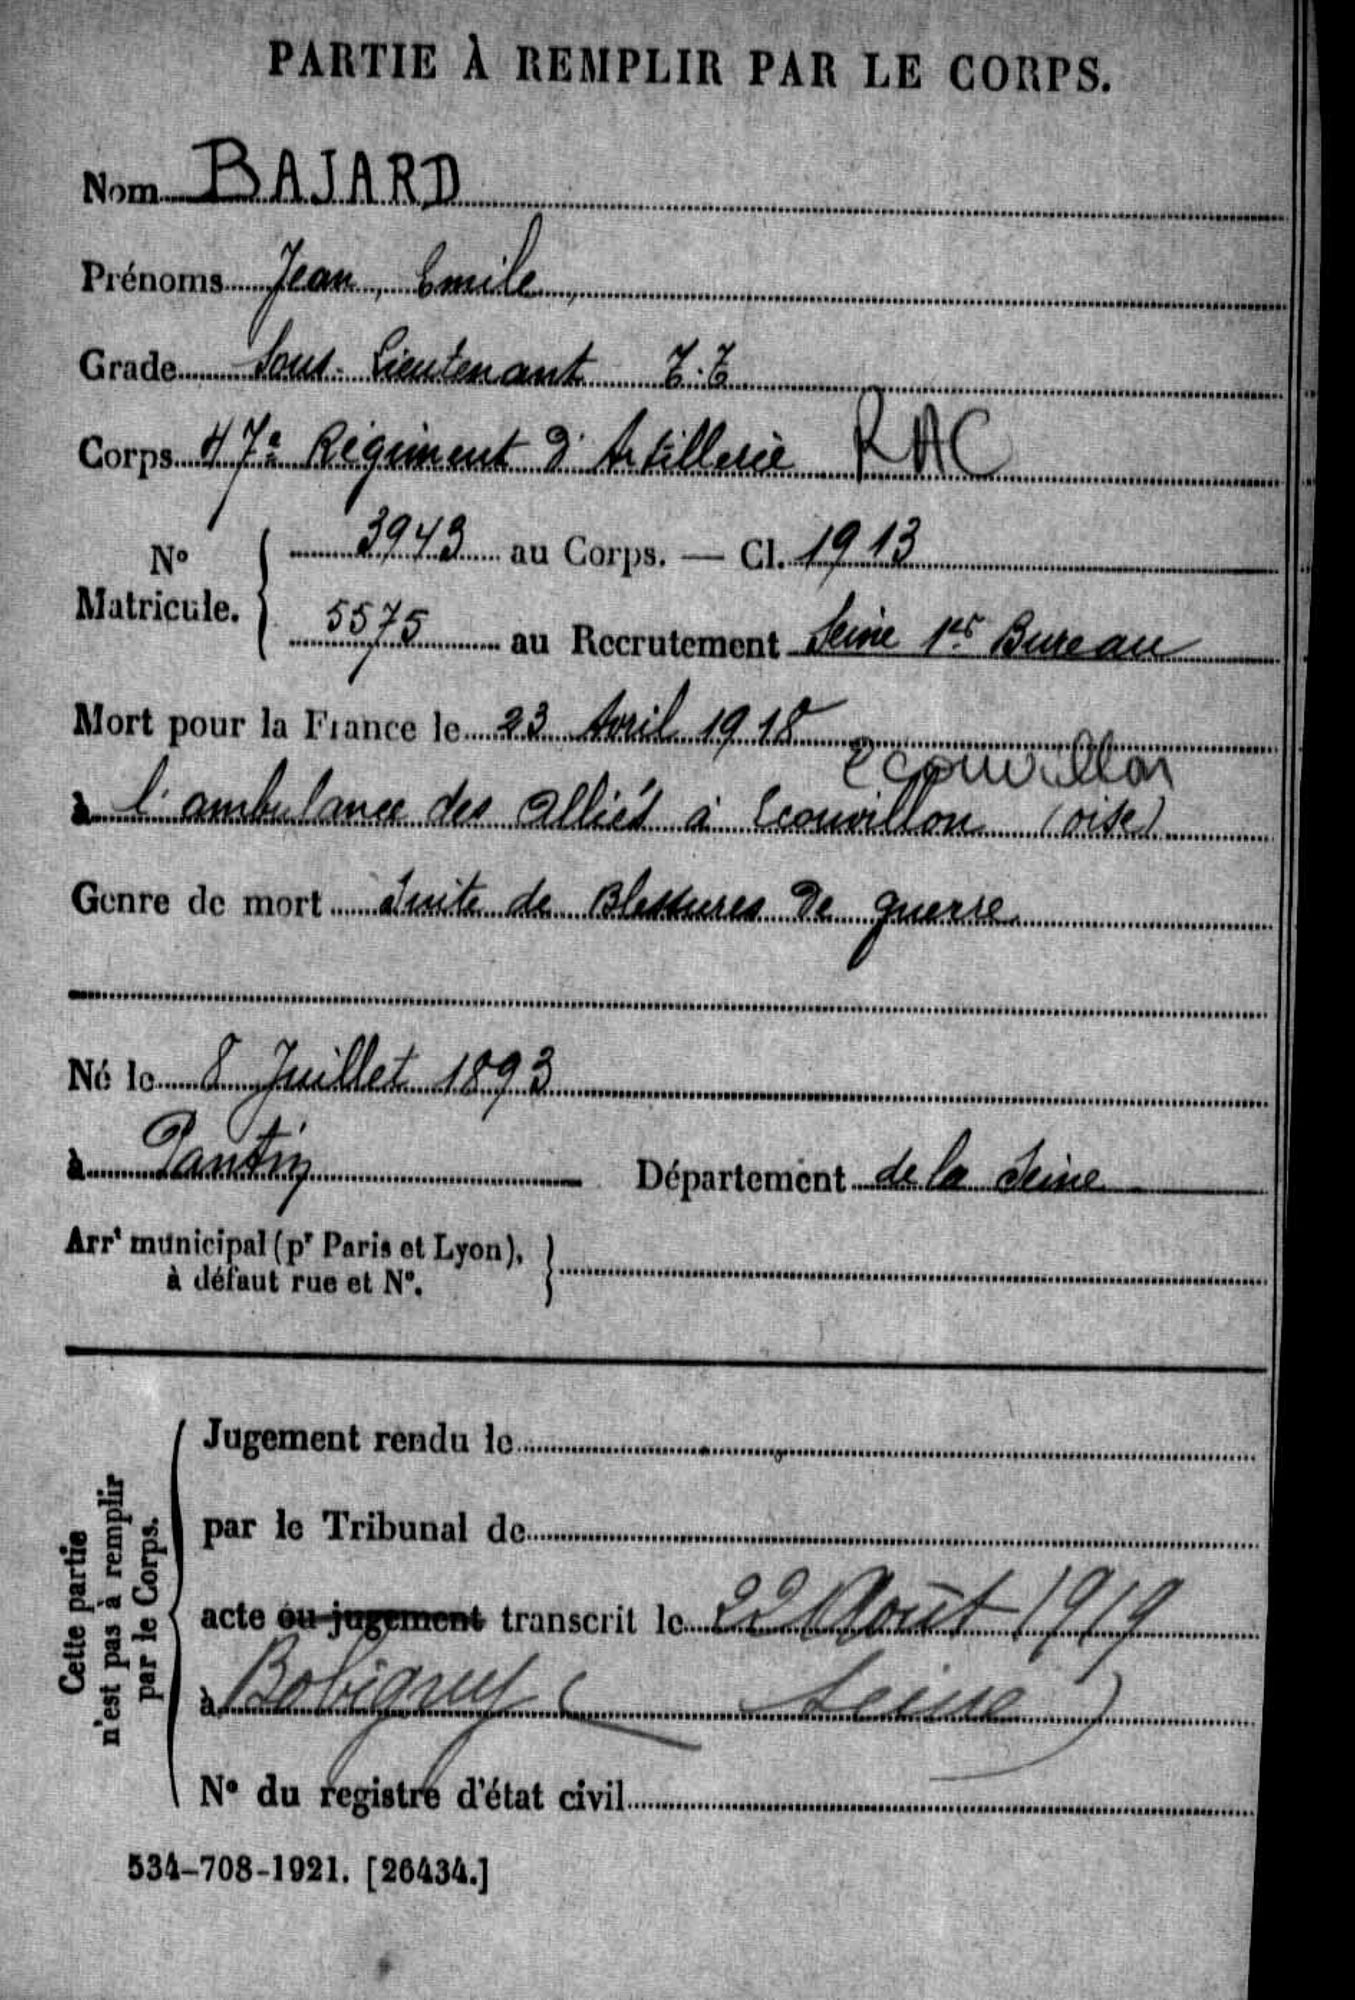 PARTIE À REMPLIR PAR LE CORPS.
Nom BAJARD
Prénoms Jean, Emile,
Grade Sous-Lieutenant T.T
Corps 47e Régiment d'Artillerie RAC
No Matricule. 3943 au Corps. — Cl. 1913
5575 au Recrutement Seine 1er Bureau
Mort pour la France le 23 Avril 1918
Ecouvillon
à l'ambulance des alliés à Ecouvillon (oise)
Genre de mort Suite de Blessures de guerre
Né le 8 Juillet 1893
à Pantin Département de la Seine
Arrt municipal (pr Paris et Lyon),
à défaut rue et No.
Cette partie
n'est pas à remplir
par le Corps.
Jugement rendu le
par le Tribunal de
acte ou jugement transcrit le 22 Août 1919
à Bobigny (Seine)
No du registre d'état civil
534-708-1921. [26434.]